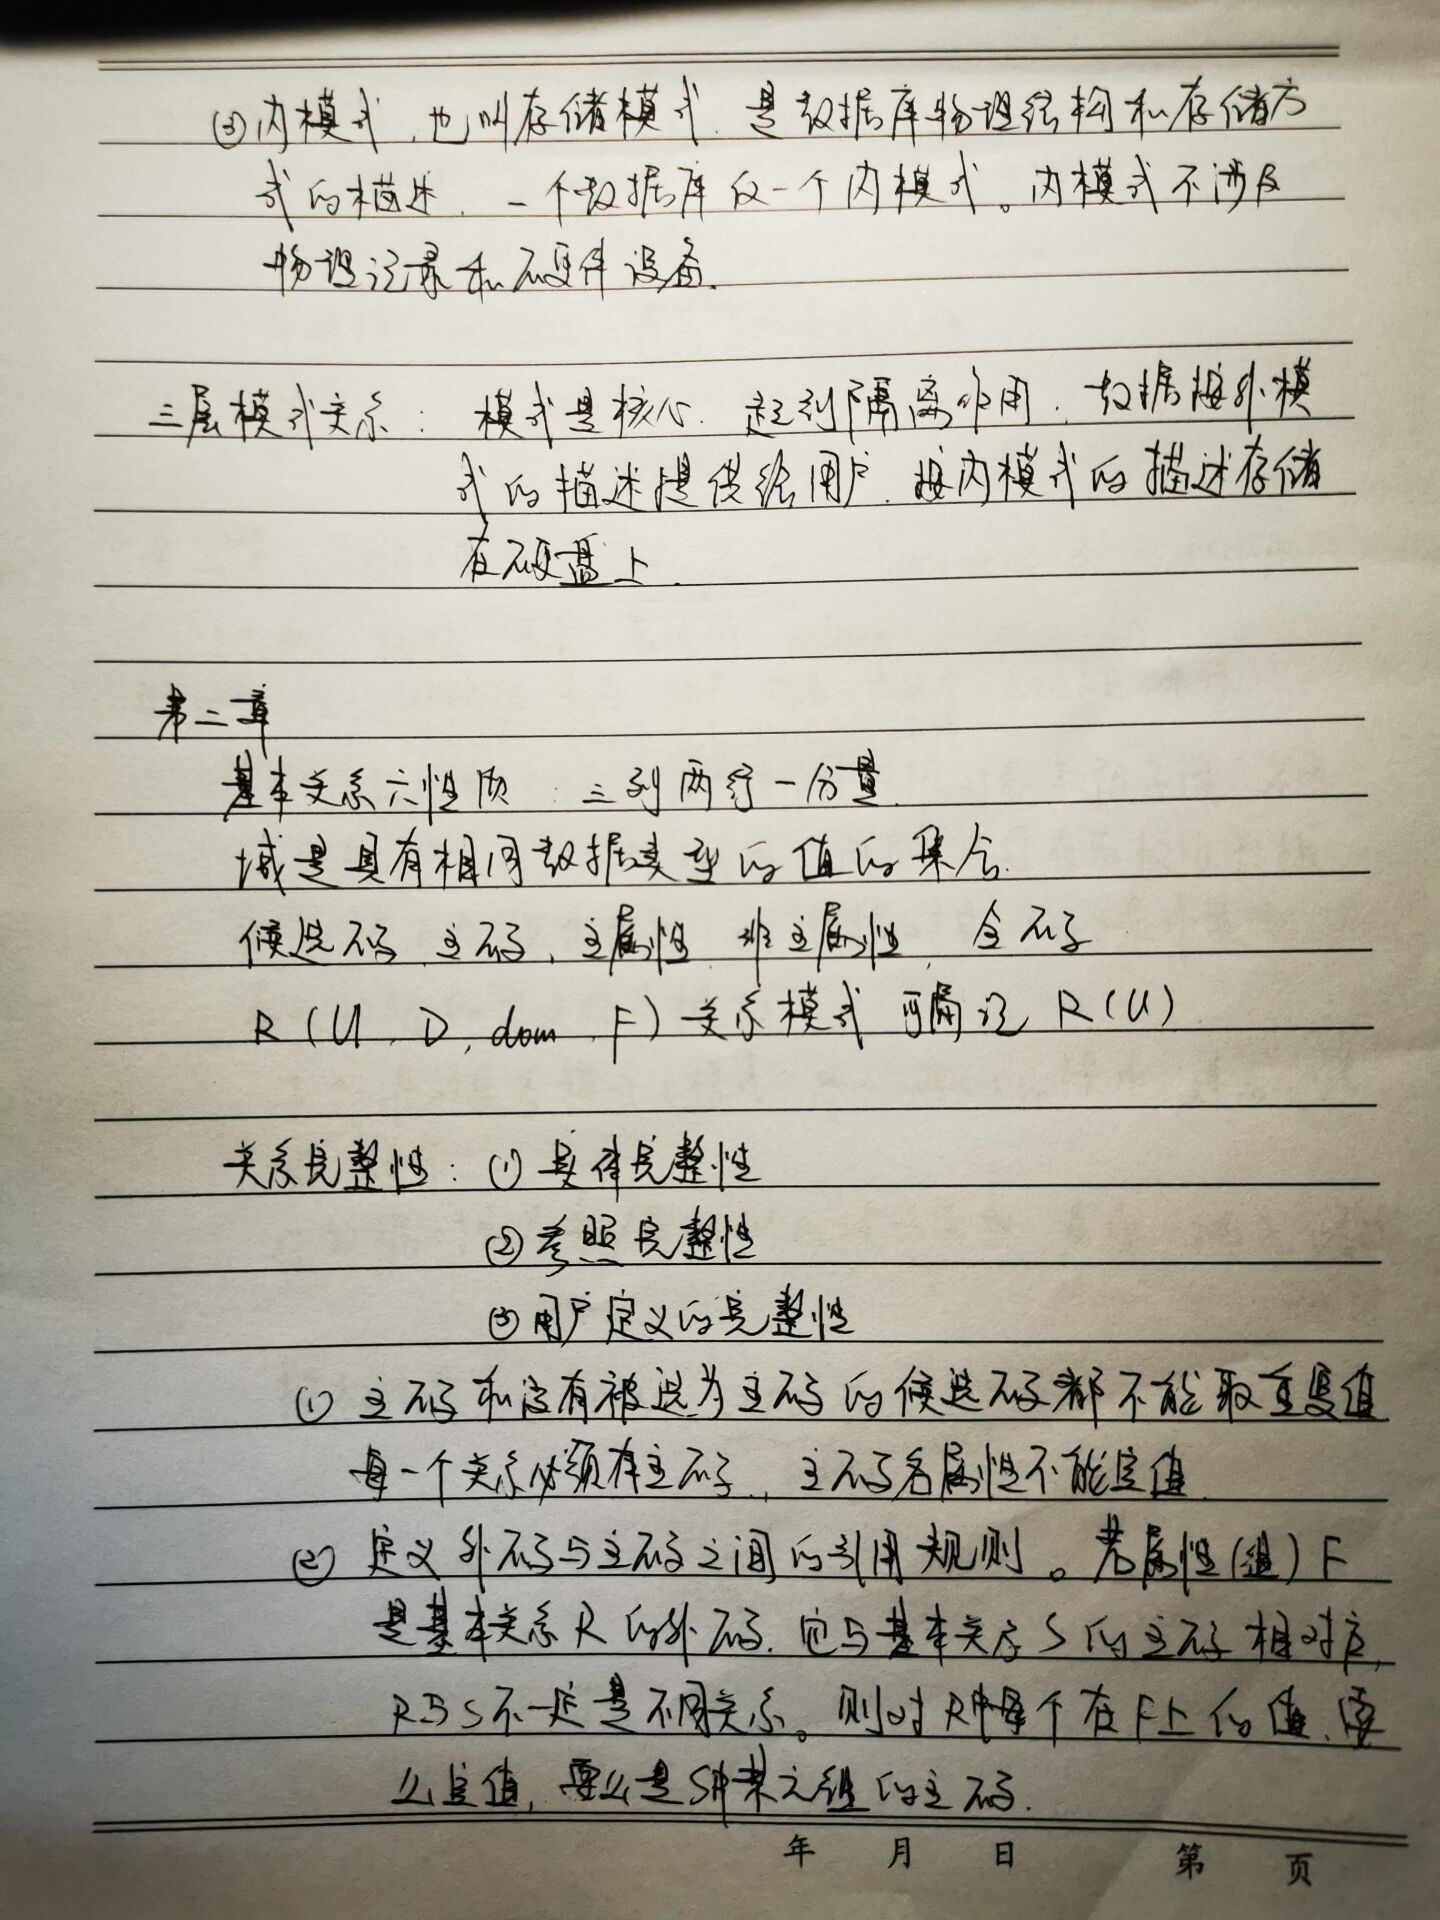 ③内模式,也叫存储模式,是数据库物理结构和存储方
式的描述,一个数据库仅一个内模式。内模式不涉及
物理记录和硬件设备.
三层模式关系: 模式是核心,起到隔离作用,数据按外模
式的描述提供给用户,按内模式的描述存储
在硬盘上.
第二章
基本关系六性质:三列两行一分量.
域是具有相同数据类型的值的集合.
候选码,主码,主属性,非主属性,全码
R(U,D,dom,F)关系模式 可简记 R(U)
关系完整性:①实体完整性
②参照完整性
③用户定义的完整性
① 主码和没有被选为主码的候选码都不能取重复值
每一个关系必须有主码,主码各属性不能空值.
② 定义外码与主码之间的引用规则。若属性(组)F
是基本关系R的外码,它与基本关系S的主码相对应,
R与S不一定是不同关系。则对R中每个在F上的值,要
么空值,要么是S中某元组的主码.
年 月 日 第 页